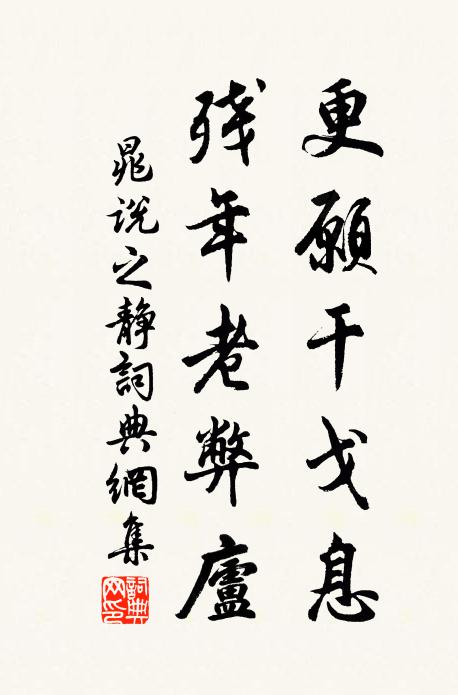 更願干戈息
殘年老弊廬
晁說之靜詞典網集
詞典網印